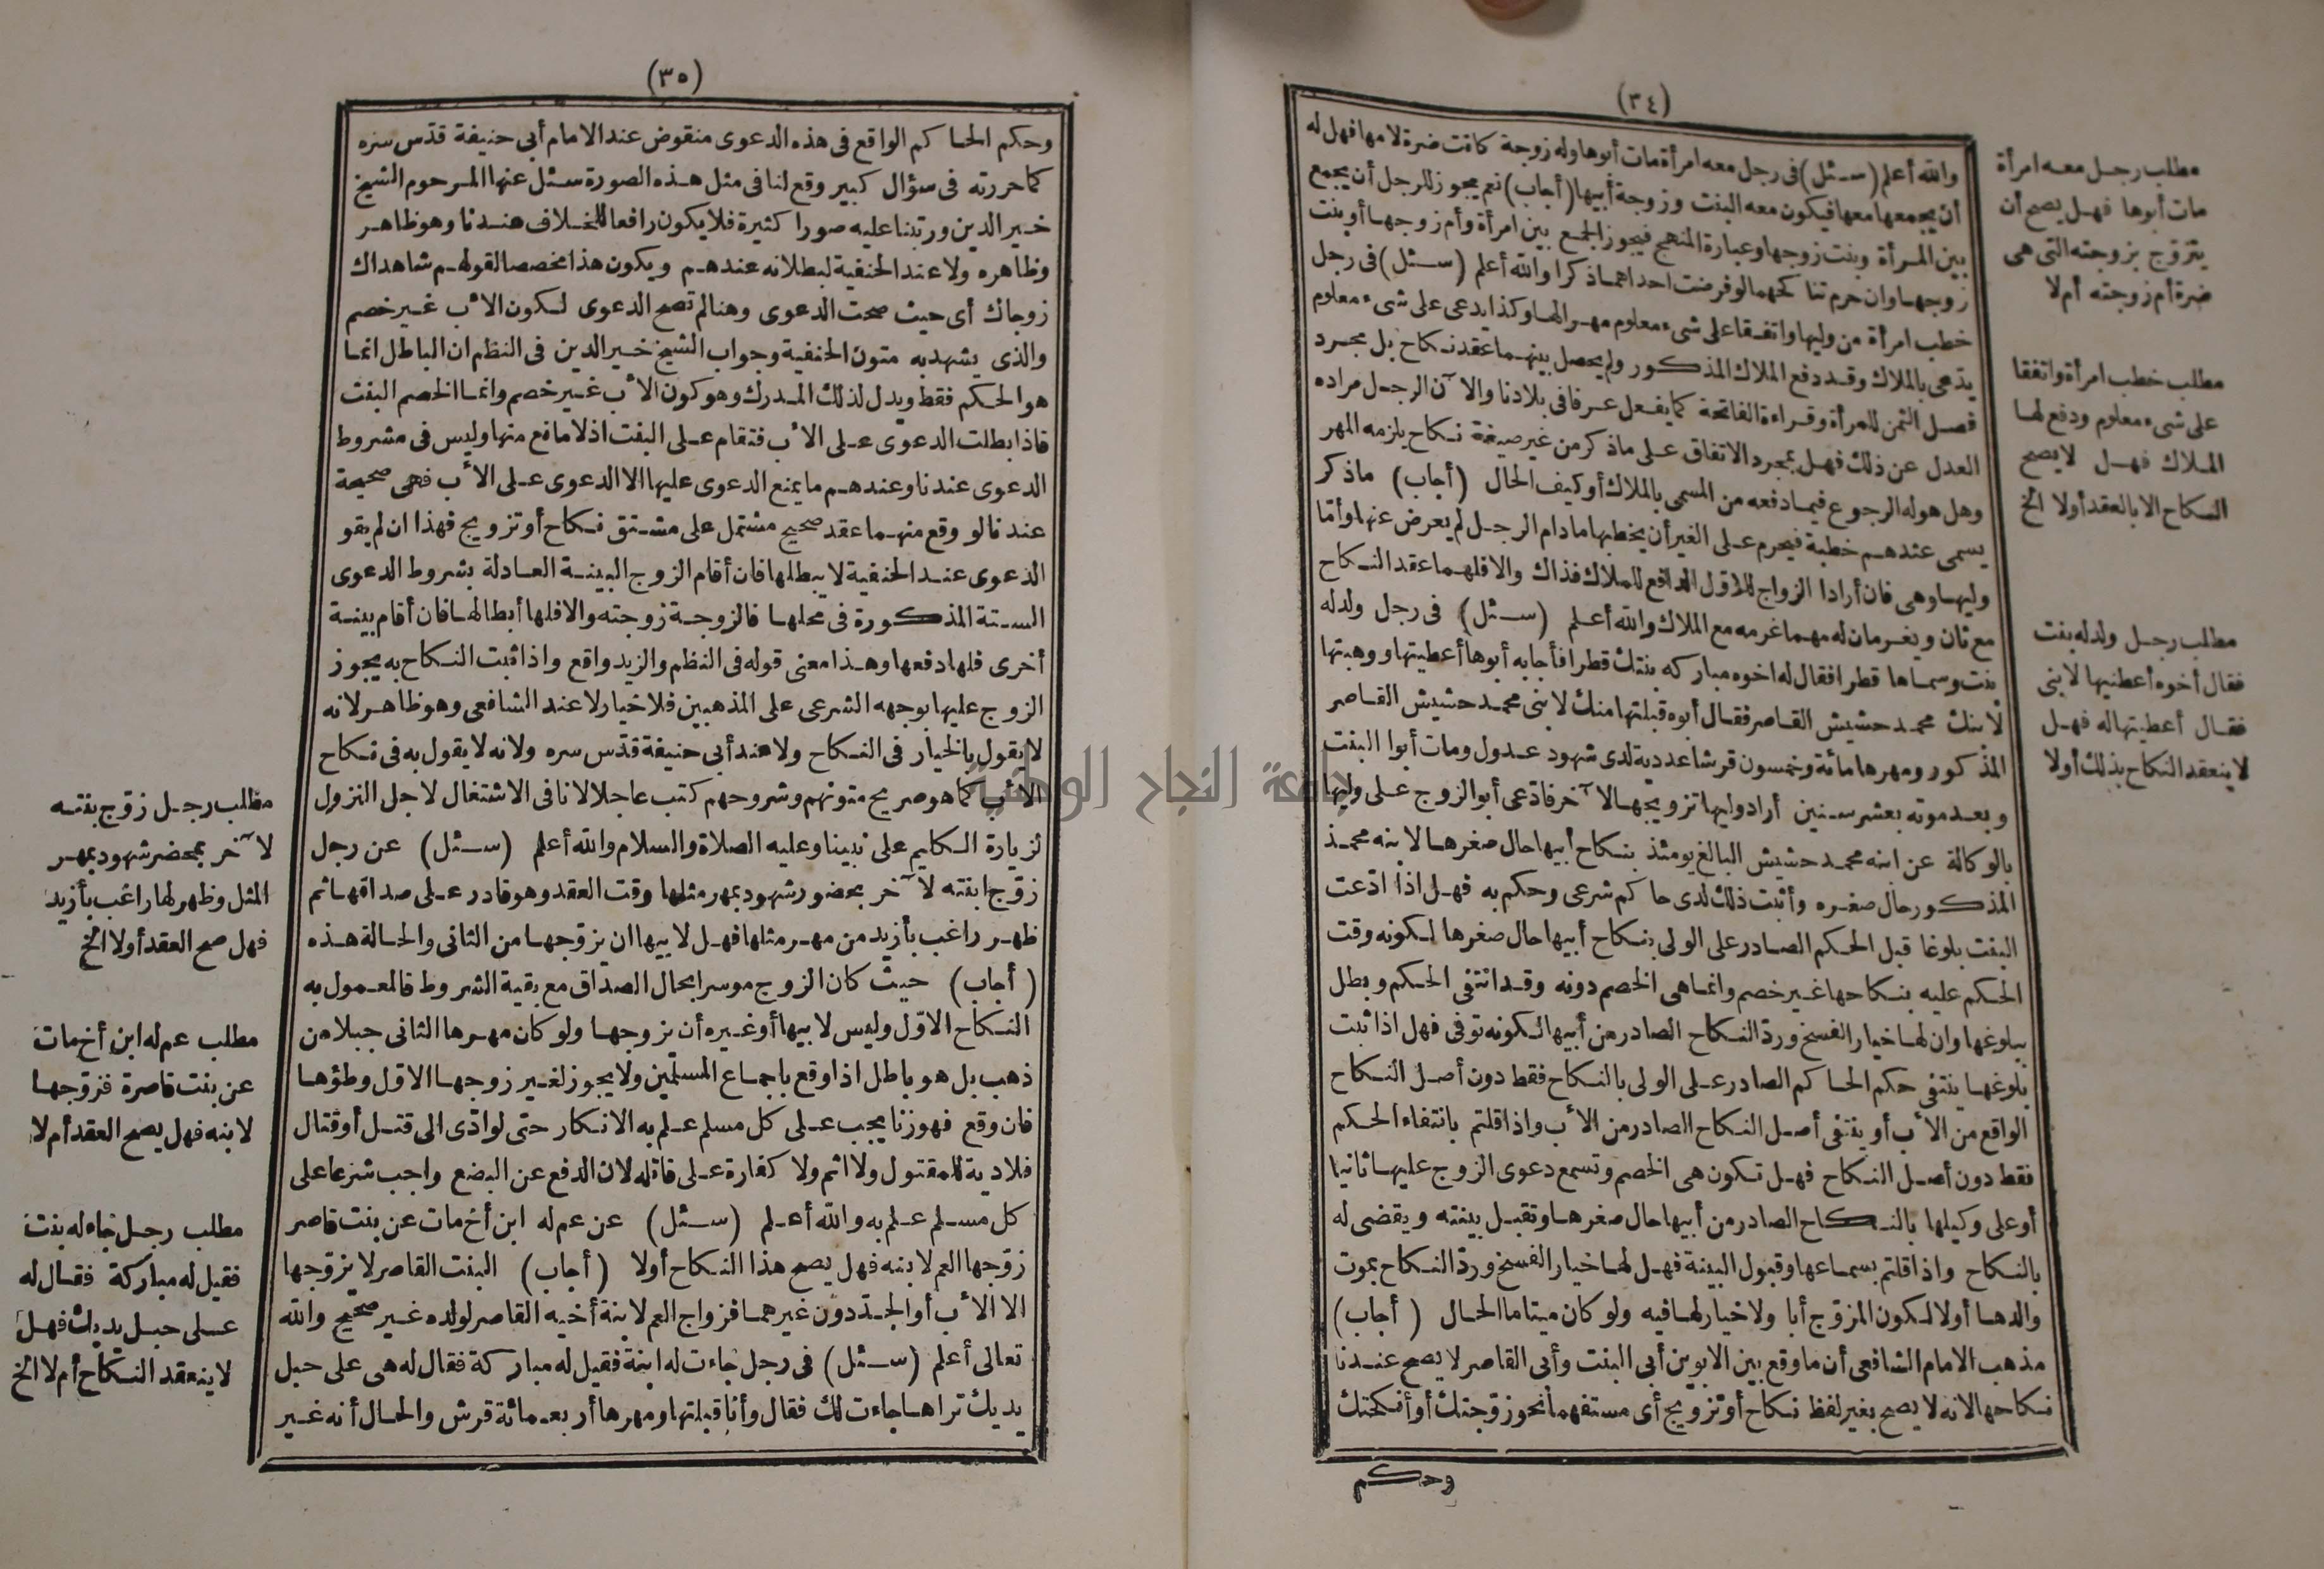 (٣٤)
والله أعلم (سئل) فى رجل معه امرأة مات أبوها وله زوجة كانت ضرة لامها فهل له
أن يجمعها معها فيكون معه البنت وزوجة أبيها (أجاب) نعم يجوز للرجل أن يجمع
بين المرأة وبنت زوجها وعبارة المنهج فيجوز الجمع بين امرأة وأم زوجها أو بنت
زوجها وان حرم تناكحهما لو فرضت احداهما ذكرا والله أعلم (سئل) فى رجل
خطب امرأة من وليها واتفقا على شىء معلوم مهر الها وكذا يدعى على شىء معلوم
يدعى بالملاك وقد دفع الملاك المذكور ولم يحصل بينهما عقد نكاح بل مجرد
فصل الثمن للمرأة وقراءة الفاتحة كما يفعل عرفا فى بلادنا والآن الرجل مراده
العدل عن ذلك فهل بمجرد الاتفاق على ماذكر من غير صيغة نكاح يلزمه المهر
وهل هوله الرجوع فيما دفعه من المسمى بالملاك أوكيف الحال (أجاب) ماذكر
يسمى عندهم خطبة فيحرم على الغير أن يخطبها مادام الرجل لم يعرض عنها وأما
وليها وهى فان أرادا الزواج للاول الدافع للملاك فذاك والافلهما عقد النكاح
مع ثان ويغرمان له مهما غرمه مع الملاك والله أعلم (سئل) فى رجل ولدله
بنت وسماها قطرا فقال له اخوه مباركه بنتك قطرا فأجابه أبوها أعطيتها ووهبتها
لابنك محمد حشيش القاصر فقال أبوه قبلتها منك لابنى محمد حشيش القاصر
المذكور ومهرها مائة وخمسون قرشا عددية لدى شهود عدول ومات أبوا البنت
وبعد موته بعشر سنين أراد وليها تزويجها لآخر فادعى أبو الزوج على وليها
بالوكالة عن ابنه محمد حشيش البالغ يومئذ بنكاح أبيها حال صغرها لابنه محمد
المذكور حال صغره وأثبت ذلك لدى حاكم شرعى وحكم به فهل اذا ادعت
البنت بلوغا قبل الحكم الصادر على الولى بنكاح أبيها حال صغرها لكونه وقت
الحكم عليه بنكاحها غير خصم وانما هى الخصم دونه وقد انتفى الحكم وبطل
ببلوغها وان لها خيار الفسخ ورد النكاح الصادر من أبيها لكونه توفى فهل اذا ثبت
بلوغها ينتفى حكم الحاكم الصادر على الولى بالنكاح فقط دون أصل النكاح
الواقع من الأب أو ينتفى أصل النكاح الصادر من الأب واذا قلتم بانتفاء الحكم
فقط دون أصل النكاح فهل تكون هى الخصم وتسمع دعوى الزوج عليها ثانيا
أوعلى وكيلها بالنكاح الصادر من أبيها حال صغرها وتقبل بينته ويقضى له
بالنكاح واذا قلتم بسماعها وقبول البينة فهل لها خيار الفسخ ورد النكاح بموت
والدها أولا لكون المزوج أبا ولا خيار لها فيه ولو كان ميتا ما الحال (أجاب)
مذهب الامام الشافعى أن ماوقع بين الابوين أبى البنت وأبى القاصر لا يصح عندنا
نكاحها لانه لا يصح بغير لفظ نكاح أو تزويج أى مستفهما نحو زوجتك أو أنكحتك
وحكم
مطلب رجل معه امرأة
مات أبوها فهل يصح أن
يتزوج بزوجته التى هى
ضرة أم زوجته أم لا
مطلب خطب امرأة واتفقا
على شىء معلوم ودفع لها
الملاك فهل لايصح
النكاح الا بالعقد أولا الخ
مطلب رجل ولدله بنت
فقال أخوه أعطنيها لابنى
فقال أعطيتها له فهل
لا ينعقد النكاح بذلك أولا
(٣٥)
وحكم الحاكم الواقع فى هذه الدعوى منقوض عند الامام أبى حنيفة قدس سره
كما حررته فى سؤال كبير وقع لنا فى مثل هذه الصورة سئل عنها المرحوم الشيخ
خير الدين ورتبنا عليه صورا كثيرة فلا يكون رافعا للخلاف عندنا وهو ظاهر
وظاهره ولا عند الحنفية لبطلانه عندهم ويكون هذا مخصصا لقولهم شاهداك
زوجاك أى حيث صحت الدعوى وهنا لم تصح الدعوى لكون الأب غير خصم
والذى يشهد به متون الحنفية وجواب الشيخ خير الدين فى النظم ان الباطل انما
هو الحكم فقط ويدل لذلك المدرك وهو كون الأب غير خصم وانما الخصم البنت
فاذا بطلت الدعوى على الأب فتقام على البنت اذ لا مانع منها وليس فى مشروط
الدعوى عندنا وعندهم ما يمنع الدعوى عليها الا الدعوى على الأب فهى صحيحة
عندنا لو وقع منهما عقد صحيح مشتمل على مشتق نكاح أو تزويج فهذا ان لم يقو
الدعوى عند الحنفية لا يبطلها فان أقام الزوج البينة العادلة بشروط الدعوى
الستة المذكورة فى محلها فالزوجة زوجته والا فلها أبطالها فان أقام بينة
أخرى فلها دفعها وهذا معنى قوله فى النظم والزيد واقع واذا ثبت النكاح به يجوز
الزوج عليها بوجهه الشرعى على المذهبين فلا خيار لا عند الشافعى وهو ظاهر لانه
لا يقول بالخيار فى النكاح ولا عند أبى حنيفة قدس سره ولانه لا يقول به فى نكاح
الأب كما هو صريح متونهم وشروحهم كتب عاجلا لانا فى الاشتغال لاجل النزول
لزيارة الكليم على نبينا وعليه الصلاة والسلام والله أعلم (سئل) عن رجل
زوج ابنته لآخر بحضور شهود بمهر مثلها وقت العقد وهو قادر على صداقها ثم
ظهر راغب بأزيد من مهر مثلها فهل لابيها ان يزوجها من الثانى والحالة هذه
(أجاب) حيث كان الزوج موسرا بحال الصداق مع بقية الشروط فالمعمول به
النكاح الاول وليس لابيها أو غيره أن يزوجها ولو كان مهرها الثانى جبلا من
ذهب بل هو باطل اذا وقع باجماع المسلمين ولا يجوز لغير زوجها الاول وطؤها
فان وقع فهو زنا يجب على كل مسلم علم به الانكار حتى لو ادى الى قتل أو قتال
فلا دية للمقتول ولا اثم ولا كفارة على قاتله لان الدفع عن البضع واجب شرعا على
كل مسلم علم به والله أعلم (سئل) عن عم له ابن أخ مات عن بنت قاصر
زوجها العم لابنه فهل يصح هذا النكاح أولا (أجاب) البنت القاصر لا يزوجها
الا الأب أو الجد دون غيرهما فزواج العم لابنة أخيه القاصر لولده غير صحيح والله
تعالى أعلم (سئل) فى رجل جاءت له ابنة فقيل له مباركة فقال له هى على حبل
يديك تراها جاءت لك فقال وأنا قبلتها ومهرها أربعمائة قرش والحال أنه غير
مطلب رجل زوج بنته
لآخر بمحضر شهود بمهر
المثل وظهر لها راغب بأزيد
فهل صح العقد أولا الخ
مطلب عم له ابن أخ مات
عن بنت قاصرة فزوجها
لابنه فهل يصح العقد أم لا
مطلب رجل جاء له بنت
فقيل له مباركة فقال له
على حبل يديك فهل
لا ينعقد النكاح أم لا الخ
جامعة النجاح الوطنية